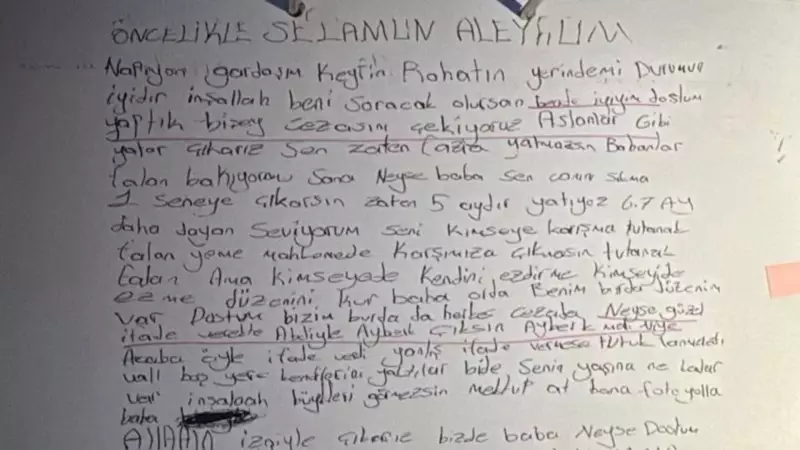 ÖNCELİKLE SELAMUN ALEYKÜM
Napıyon gardaşım Keyfin Rahatın yerindemi Durumun
iyidir inşallah beni soracak olursan bende iyiyim dostum
yaptık bizey cezasını çekiyoruz Aslanlar Gibi
yatar çıkarız Sen zaten fazla yatmazsın Babanlar
falan bakıyorlar Sana Neyse baba sen canın sıkma
1 seneye çıkarsın zaten 5 aydır yatıyoz 6.7 Ay
daha dayan Seviyorum seni Kimseye karışma tutanak
falan yeme mahkemede karşımıza çıkmasın tutanak
falan Ama Kimseyede Kendini ezdirme Kimseyide
ezme düzenini Kur baba orda Benim burda düzenim
var Dostum bizim burda da herkes cezada Neyse güzel
ifade verelim Abeliyle Ayberk çıksın Ayberk niye
Acaba öyle ifade verdi yanlış ifade vermese tutuklanmazdı
vall boş yere kendilerini yaktılar bide Senin yaşına ne kadar
var inşalaah büyükleri görmezsin mektup at bana foto yolla
baba
izniyle çıkarız bizde baba Neyse Dostum